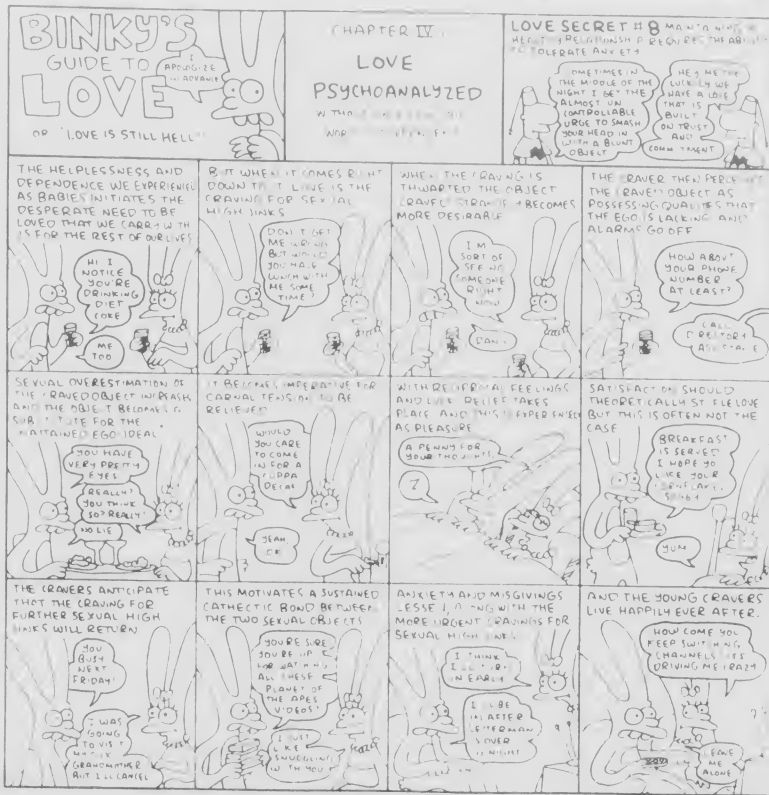 BINKY'S
GUIDE TO
LOVE
I
APOLOGIZE
IN ADVANCE
OR "LOVE IS STILL HELL"
CHAPTER IV
LOVE
PSYCHOANALYZED
LOVE SECRET #8
TOLERATE ANXIETY
SOMETIMES IN
THE MIDDLE OF THE
NIGHT I GET THE
ALMOST UN
CONTROLLABLE
URGE TO SMASH
YOUR HEAD IN
WITH A BLUNT
OBJECT
LUCKILY WE
HAVE A LOVE
THAT IS
BUILT
ON TRUST
AND
COMMITMENT
THE HELPLESSNESS AND
DEPENDENCE WE EXPERIENCE
AS BABIES INITIATES THE
DESPERATE NEED TO BE
LOVED THAT WE CARRY WITH
US FOR THE REST OF OUR LIVES
HI I
NOTICE
YOU'RE
DRINKING
DIET
COKE
ME
TOO
BUT WHEN IT COMES RIGHT
DOWN TO IT LOVE IS THE
CRAVING FOR SEXUAL
HIGH JINKS
DON'T GET
ME WRONG
BUT WOULD
YOU HAVE
LUNCH WITH
ME SOME
TIME?
WHEN THE CRAVING IS
THWARTED THE OBJECT
CRAVED STRANGELY BECOMES
MORE DESIRABLE
I'M
SORT OF
SEEING
SOMEONE
RIGHT
NOW
DANG
THE CRAVER THEN PERCEIVES
THE CRAVED OBJECT AS
POSSESSING QUALITIES THAT
THE EGO IS LACKING AND
ALARMS GO OFF
HOW ABOUT
YOUR PHONE
NUMBER
AT LEAST?
CALL
DIRECTORY
ASSISTANCE
SEXUAL OVERESTIMATION OF
THE CRAVED OBJECT INCREASES
AND THE OBJECT BECOMES A
SUBSTITUTE FOR THE
UNATTAINED EGO-IDEAL
YOU HAVE
VERY PRETTY
EYES
REALLY?
YOU THINK
SO? REALLY?
NO LIE
IT BECOMES IMPERATIVE FOR
CARNAL TENSION TO BE
RELIEVED
WOULD
YOU CARE
TO COME
IN FOR A
CUPPA
DECAF
YEAH
OK
WITH RECIPROCAL FEELINGS
AND LUCK RELIEF TAKES
PLACE AND THIS IS EXPERIENCED
AS PLEASURE
A PENNY FOR
YOUR THOUGHTS
Z
SATISFACTION SHOULD
THEORETICALLY STIFLE LOVE
BUT THIS IS OFTEN NOT THE
CASE
BREAKFAST
IS SERVED
I HOPE YOU
LIKE YOUR
CORNFLAKES
SOGGY
YUM
THE CRAVERS ANTICIPATE
THAT THE CRAVING FOR
FURTHER SEXUAL HIGH
JINKS WILL RETURN
YOU
BUSY
NEXT
FRIDAY?
I WAS
GOING
TO VISIT
GRANDMOTHER
BUT I'LL CANCEL
THIS MOTIVATES A SUSTAINED
CATHECTIC BOND BETWEEN
THE TWO SEXUAL OBJECTS
YOU'RE SURE
YOU'RE UP
FOR WATCHING
ALL THESE
PLANET OF
THE APES
VIDEOS?
I JUST
LIKE
SNUGGLING
WITH YOU
ANXIETY AND MISGIVINGS
LESSEN ALONG WITH THE
MORE URGENT CRAVINGS FOR
SEXUAL HIGH JINKS
I THINK
I'LL TURN
IN EARLY
I'LL BE
IN AFTER
LETTERMAN
IS OVER
TONIGHT
AND THE YOUNG CRAVERS
LIVE HAPPILY EVER AFTER.
HOW COME YOU
KEEP SWITCHING
CHANNELS IT'S
DRIVING ME CRAZY
LEAVE
ME
ALONE